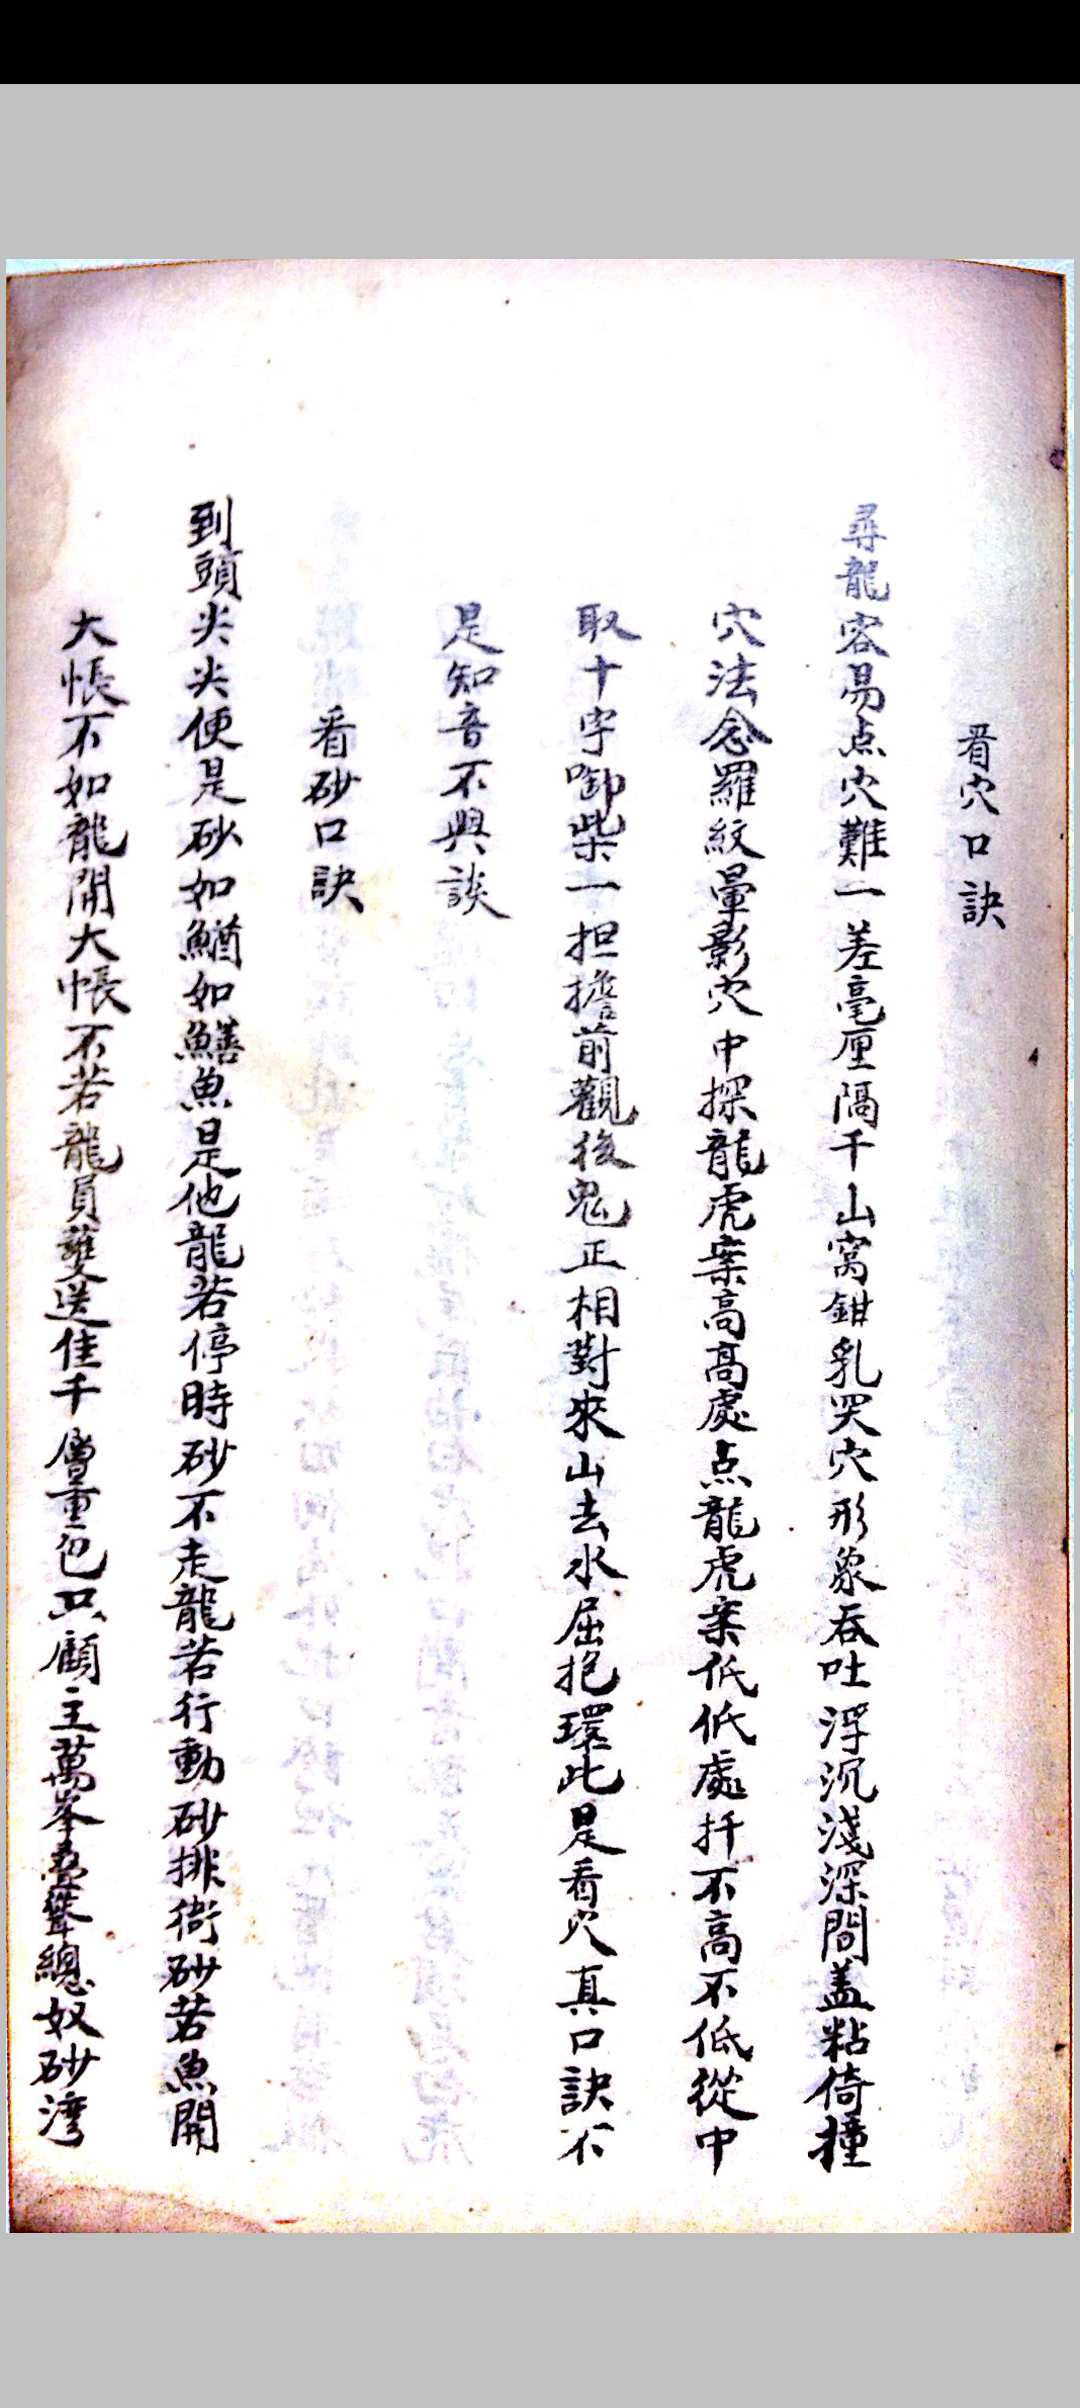 看穴口訣
尋龍容易点穴難一差毫厘隔千山窩鉗乳突穴形象吞吐浮沉淺深間盖粘倚撞
穴法念羅紋暈影穴中探龍虎案高高處点龍虎案低低處扦不高不低從中
取十字啣柴一担擔前觀後鬼正相對來山去水屈抱環此是看穴真口訣不
是知音不與談
看砂口訣
到頭尖尖便是砂如鰌如鱔魚是他龍若停時砂不走龍若行動砂排衙砂若魚開
大帳不如龍開大帳不若龍員護送佳千層重包只顧主萬峯疊聳總奴砂灣